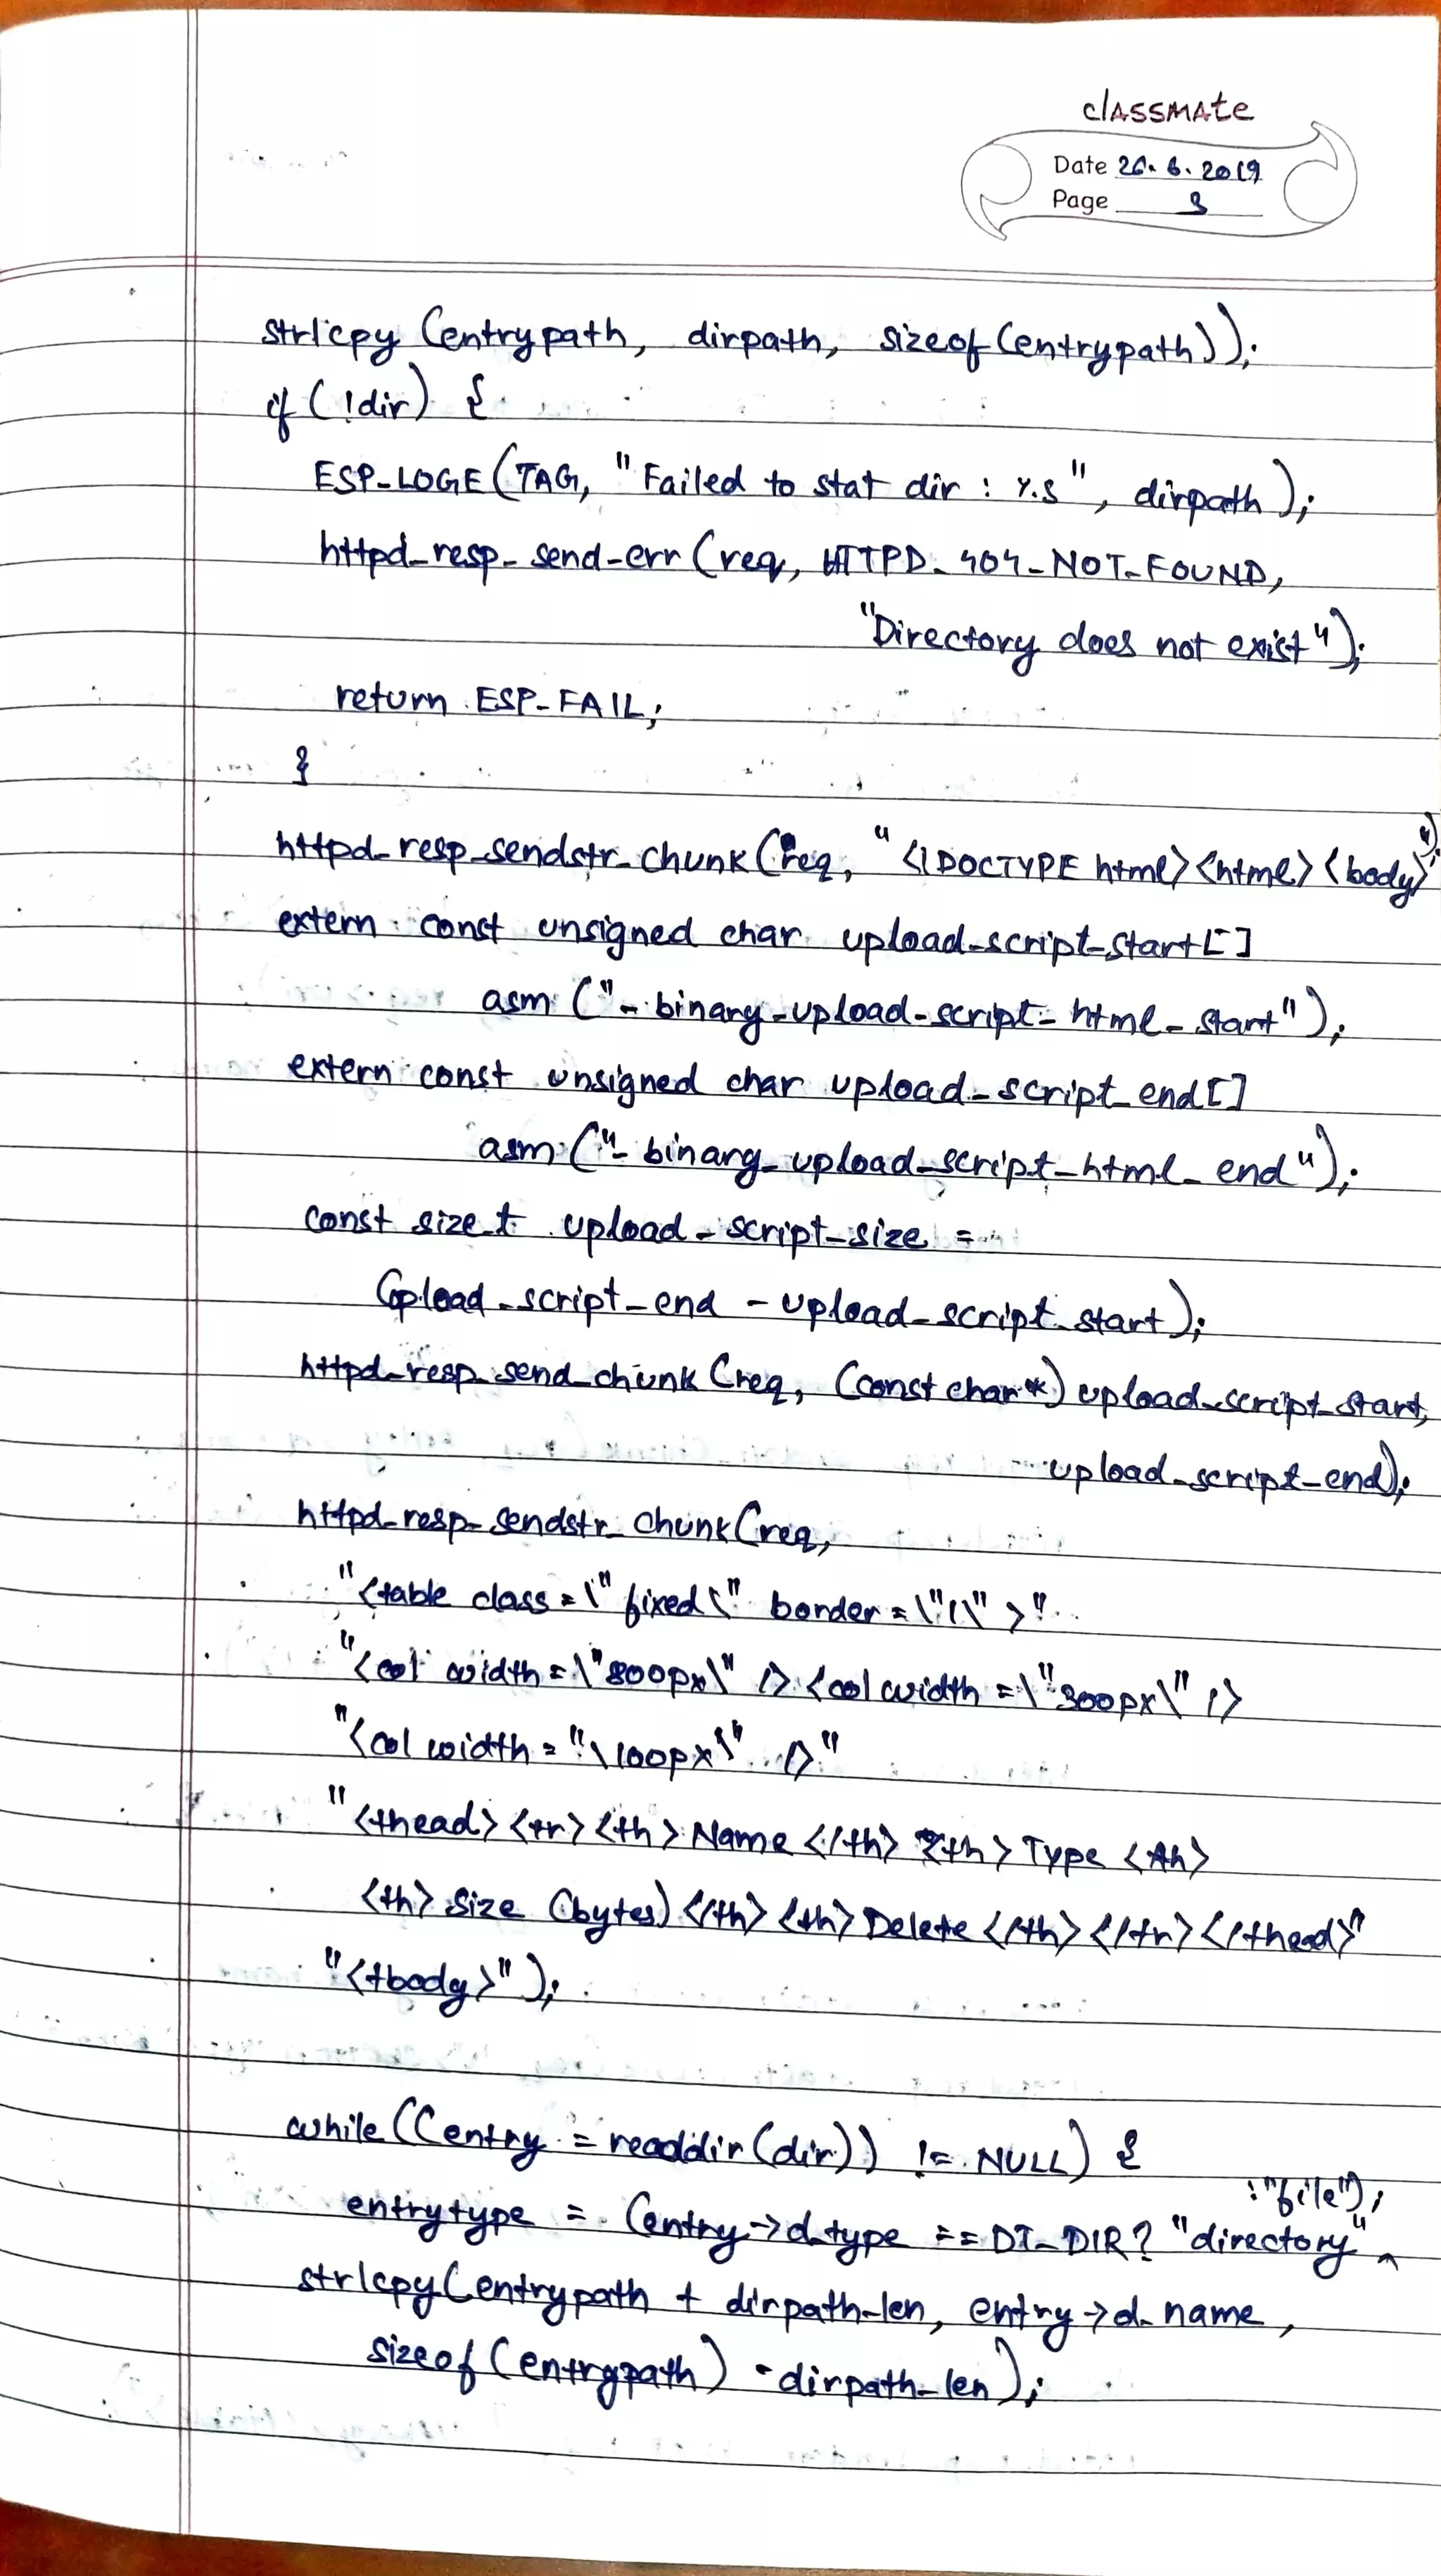 classmate
Date 26.6.2019
Page 3
strlcpy (entrypath, dirpath, sizeof (entrypath));
if (!dir) {
ESP_LOGE (TAG, "Failed to stat dir : %s", dirpath);
httpd_resp_send_err (req, HTTPD_404_NOT_FOUND,
"Directory does not exist");
return ESP_FAIL;
}
httpd_resp_sendstr_chunk (req, "<!DOCTYPE html><html><body>");
extern const unsigned char upload_script_start[]
asm ("_binary_upload_script_html_start");
extern const unsigned char upload_script_end[]
asm ("_binary_upload_script_html_end");
const size_t upload_script_size =
(upload_script_end - upload_script_start);
httpd_resp_send_chunk (req, (const char*) upload_script_start,
upload_script_end);
httpd_resp_sendstr_chunk (req,
"<table class=\"fixed\" border=\"1\">"
"<col width=\"800px\" /><col width=\"300px\" />
"<col width="\100px\" />"
"<thead><tr><th>Name</th><th>Type</th>
<th>Size (bytes)</th><th>Delete</th></tr></thead>"
"<tbody>");
while ((entry = readdir (dir)) != NULL) {
entrytype = (entry->d_type == DT_DIR? "directory" : "file");
strlcpy (entrypath + dirpath_len, entry->d_name,
sizeof (entrypath) - dirpath_len);